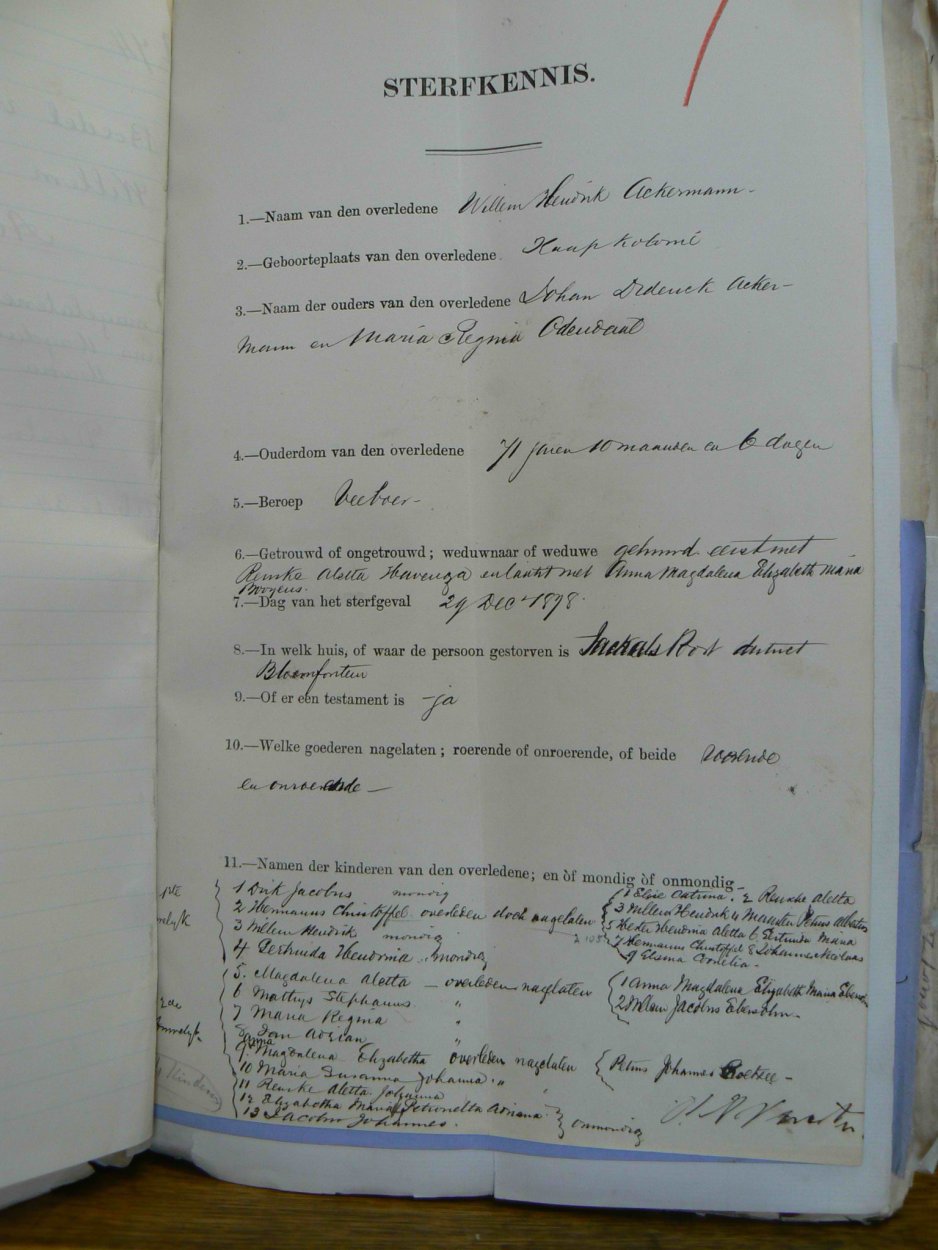 STERFKENNIS.
1.—Naam van den overledene Willem Hendrik Ackermann-
2.—Geboorteplaats van den overledene. Kaap Kolonie
3.—Naam der ouders van den overledene Johan Dederick Acker-
mann en Maria Regina Odendaal
4.—Ouderdom van den overledene 71 jaren 10 maanden en 6 dagen
5.—Beroep Veeboer-
6.—Getrouwd of ongetrouwd; weduwnaar of weduwe gehuwd eerst met
Renske Aletta Havenga en laatst met Anna Magdalena Elizabeth Maria
Booyens.
7.—Dag van het sterfgeval 29 Dec 1898.
8.—In welk huis, of waar de persoon gestorven is Jackals Post district
Bloemfontein
9.—Of er een testament is -ja
10.—Welke goederen nagelaten; roerende of onroerende, of beide roerende
en onroerende —
11.—Namen der kinderen van den overledene; en òf mondig òf onmondig
1 Dirk Jacobus mondig
2 Hermanus Christoffel overleden doch nagelaten
3 Willem Hendrik mondig
4 Gertruida Hendrina .. mondig
1 Elsie Catrina. 2 Renske Aletta
3 Willem Hendrik 4 Petrus Albertus
5 Hester Hendrina Aletta 6 Gertruida Maria
7 Hermanus Christoffel 8 Johannes Nicolaas
9 Elsina Cornelia -
5. Magdalena Aletta — overleden nagelaten
6 Mathys Stephanus "
7 Maria Regina "
8 Jan Adrian
1 Anna Magdalena Elizabeth Maria Ebersohn
2 Willem Jacobus Ebersohn-
9. Anna Magdalena Elizabetha overleden nagelaten Petrus Johannes Coetzee -
10 Maria Susanna Johanna "
11 Renske Aletta Johanna
12 Elizabetha Maria Petronella Adriana
13 Jacobus Johannes.
onmondig
kinderen